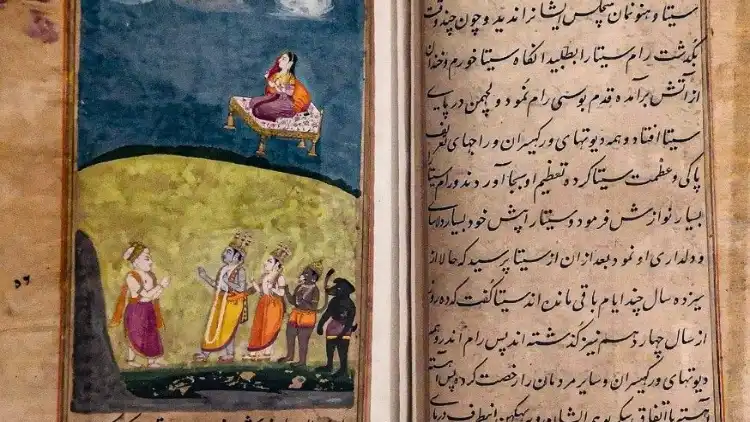 سیتا و هنومان مجلس ایشانرا ندید و چون چند وقت
بگذشت رام سیتا را بطلبید آنگاه سیتا خورم و خندان
از آتش برآمده قدم بوسی رام نمود و لچهمن در پای
سیتا افتاد و همه دیوتهای ورکهیسران و راجهای تعریف
پاکی و عظمت سیتا کرده تعظیم او بجا آوردند و رام سیتا را
بسیار نوازش فرمود و سیتا را پیش خود بسیار دلهای
و دلداری او نمود بعد از ان از سیتا پرسید که حالا از
سیزده سال چند ایام باقی مانده اند سیتا گفت که ده روز
از سال چهاردهم نیز گذشته اند پس رام اندر و همه
دیوتهای ورکهیسران و سایر مردمان را رخصت کرده پس
با اتفاق یکدیگر
۵۶